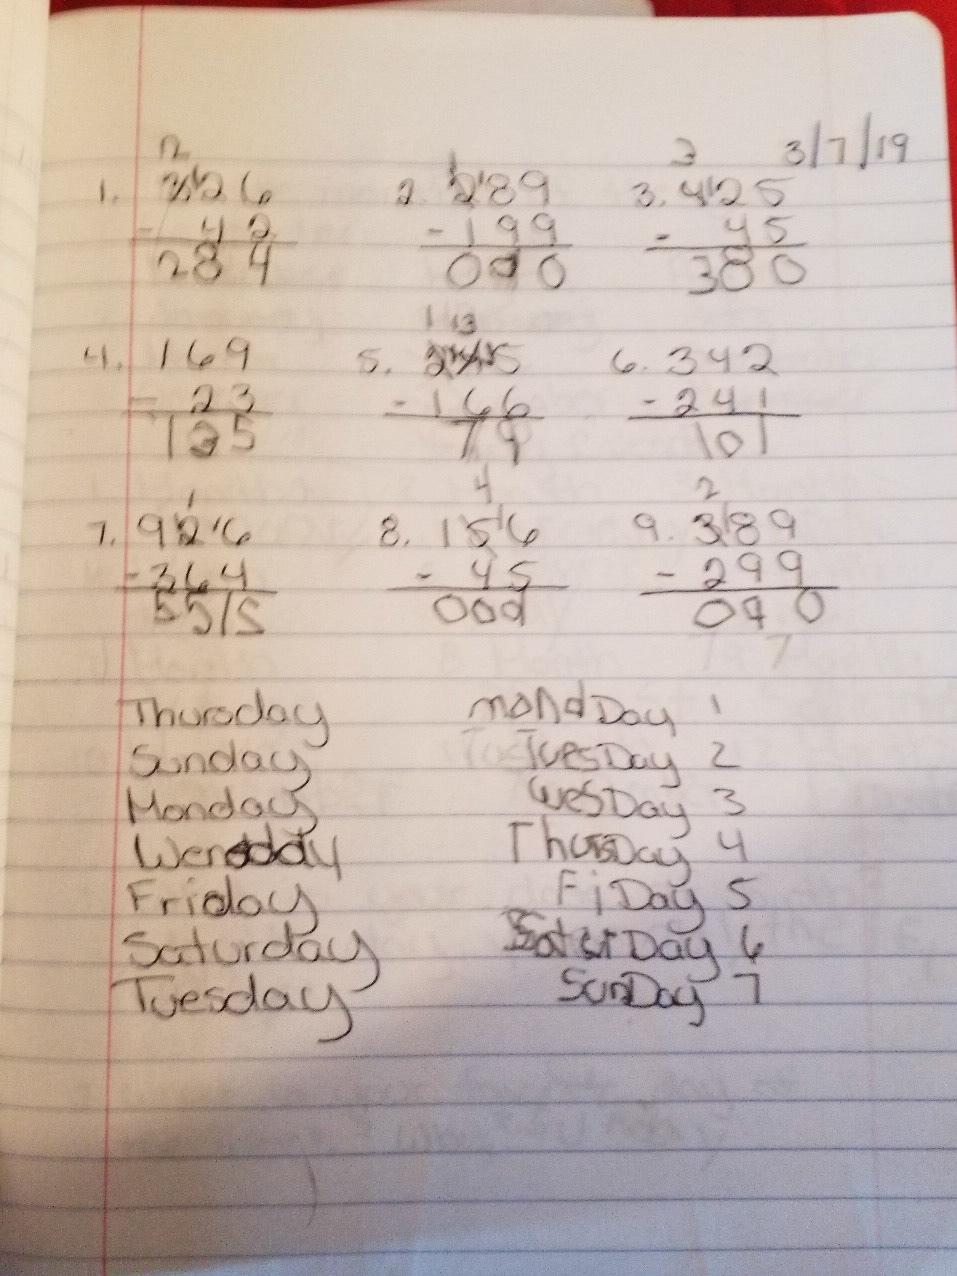 3/7/19
2 1 3
1. 326 2. 289 3. 425
- 42 - 199 - 45
284 090 380
1 13
4. 169 5. 245 6. 342
- 23 - 166 - 241
125 79 101
1 4 2
7. 926 8. 156 9. 389
- 364 - 45 - 299
5515 009 090
7
Thursday mondDay 1
Sunday TuesDay 2
Monday WesDay 3
ThursDay 4
Friday FiDay 5
Saturday SaturDay 6
Tuesday SunDay 7